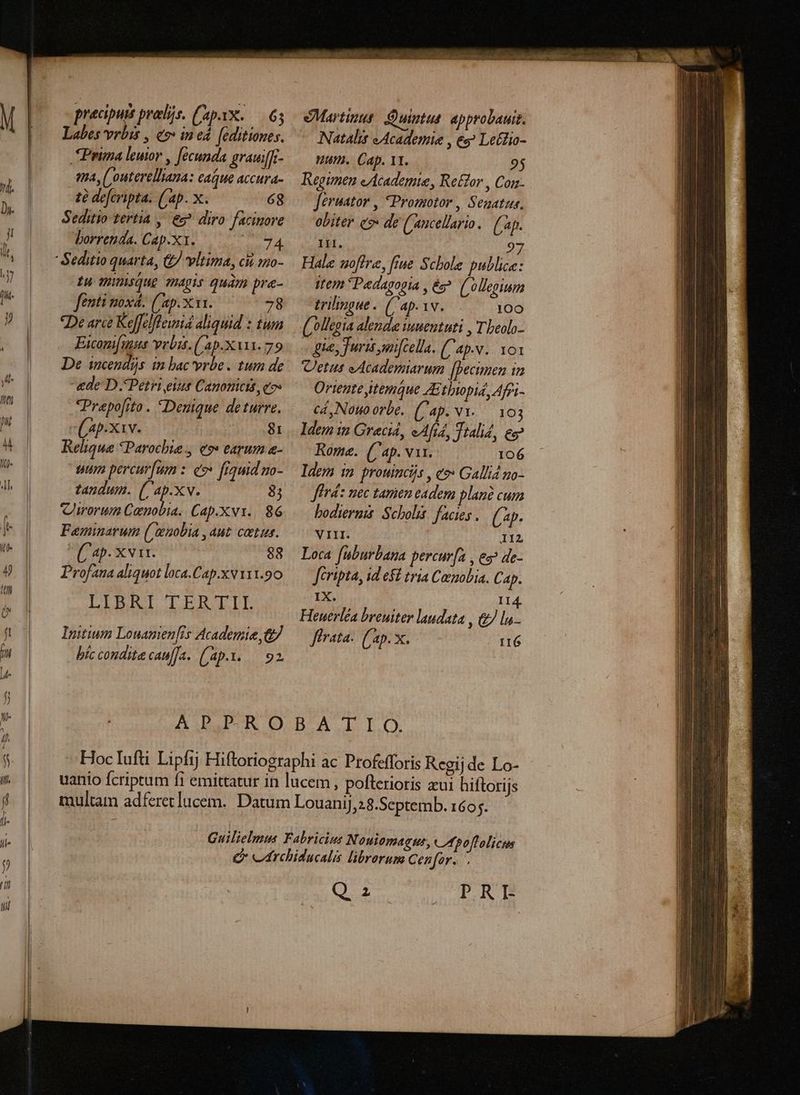 præcipuis prælijs. Cap.IX. 63
Labes vrbis, & in eâ seditiones.
Prima leuior, secunda grauissi-
ma, Couterelliana: eaque accura-
tè descripta. Cap. X. 68
Seditio tertia, & diro facinore
horrenda. Cap.XI. 74
Seditio quarta, & vltima, cũ mo-
tu minisque magis quàm præ-
senti noxâ. Cap.XII. 78
De arce Kesselsteiniâ aliquid: tum
Eiconismus vrbis. Cap.XIII. 79
De incendijs in hac vrbe. tum de
æde D. Petri, eius Canonicis, &
Præposito. Denique de turre.
Cap.XIV. 81
Reliquæ Parochiæ, & earum æ-
uum percursum: & siquid no-
tandum. Cap.XV. 85
Virorum Cœnobia. Cap.XVI. 86
Feminarum Cœnobia, aut cœtus.
Cap.XVII. 88
Profana aliquot loca. Cap.XVIII. 90
LIBRI TERTII.
Initium Louaniensis Academiæ, &
hîc conditæ caussa. Cap.I. 92
Martinus Quintus approbauit.
Natalis Academiæ, & Lectio-
num. Cap. II. 95
Regimen Academiæ, Rector, Con-
seruator, Promotor, Senatus,
obiter & de Cancellario. Cap.
III. 97
Halæ nostræ, siue Scholæ publicæ:
item Pædagogia, & Collegium
trilingue. Cap. IV. 100
Collegia alendæ iuuentuti, Theolo-
giæ, Iuris, miscella. Cap.V. 101
Vetus Academiarum specimen in
Oriente, itemque Æthiopiâ, Afri-
câ, Nouo orbe. Cap. VI. 103
Idem in Græciâ, Asiâ, Italiâ, &
Rome. Cap. VII. 106
Idem in prouincijs, & Galliâ no-
strâ: nec tamen eadem planè cum
hodiernis Scholis facies. Cap.
VIII. 112
Loca suburbana percursa, & de-
scripta, id est tria Cœnobia. Cap.
IX. 114
Heuerlêa breuiter laudata, & lu-
strata. Cap. X. 116
APPROBATIO.
Hoc Iusti Lipsij Historiographi ac Professoris Regij de Lo-
uanio scriptum si emittatur in lucem, posterioris æui historijs
multam adferet lucem. Datum Louanij, 28. Septemb. 1605.
Guilielmus Fabricius Nouiomagus, Apostolicus
& Archiducalis librorum Censor.
Q 2 PRI-